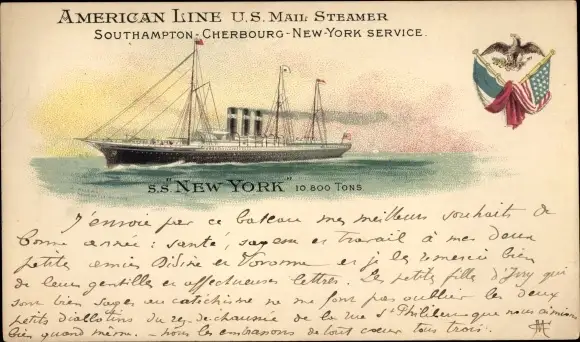 AMERICAN LINE U.S. MAIL STEAMER
SOUTHAMPTON-CHERBOURG-NEW-YORK SERVICE.
S.S "NEW YORK" 10.800 TONS
J'envoie par ce bateau mes meilleurs souhaits de
bonne année : santé, sagesse et travail à mes deux
petites amies et Yvonne et je les remercie bien
de leurs gentilles et affectueuses lettres. Les petites filles d'Ivry qui
sont bien sages au catéchisme ne me font pas oublier les deux
petits diablotins du rez-de-chaussée de la rue St Philibert que nous aimions
bien quand même. - nous les embrassons de tout cœur tous trois.